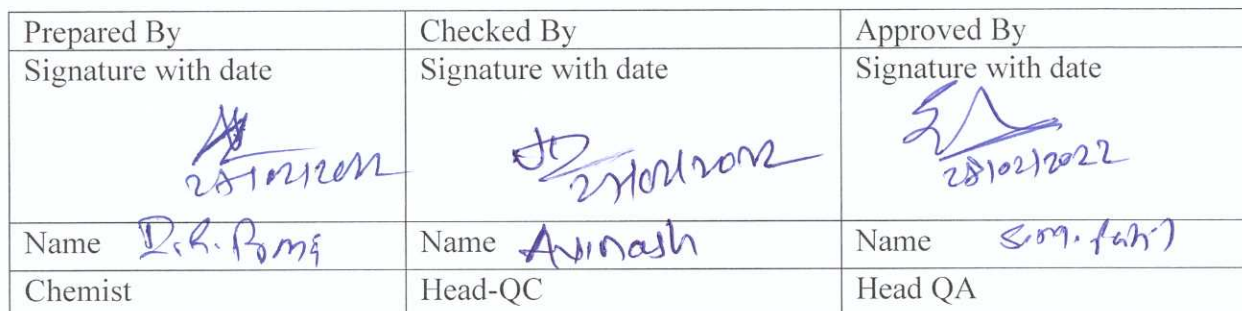 Prepared By Checked By Approved By
Signature with date Signature with date Signature with date
28/02/2022
Name Name Avinash Name
Chemist Head-QC Head QA